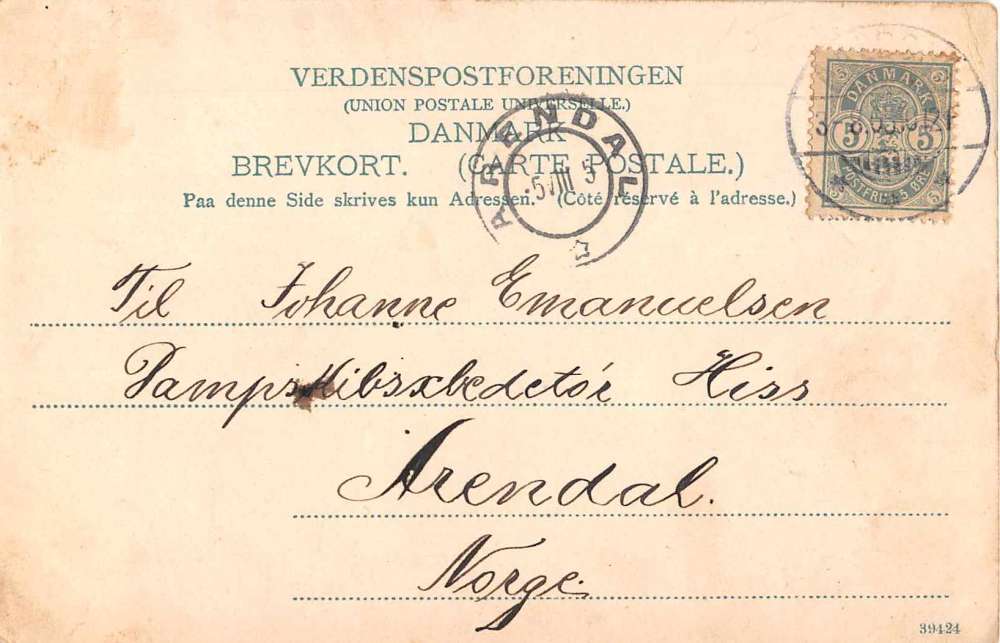 VERDENSPOSTFORENINGEN
(UNION POSTALE UNIVERSELLE.)
DANMARK
BREVKORT. (CARTE POSTALE.)
Paa denne Side skrives kun Adressen. (Côté réservé à l'adresse.)
DANMARK
5 5
5 5
POSTFRIM. 5 ØRE
5 5
ARENDAL
5 VIII
Til Johanne Emanuelsen
Hiss
Arendal.
Norge.
39424